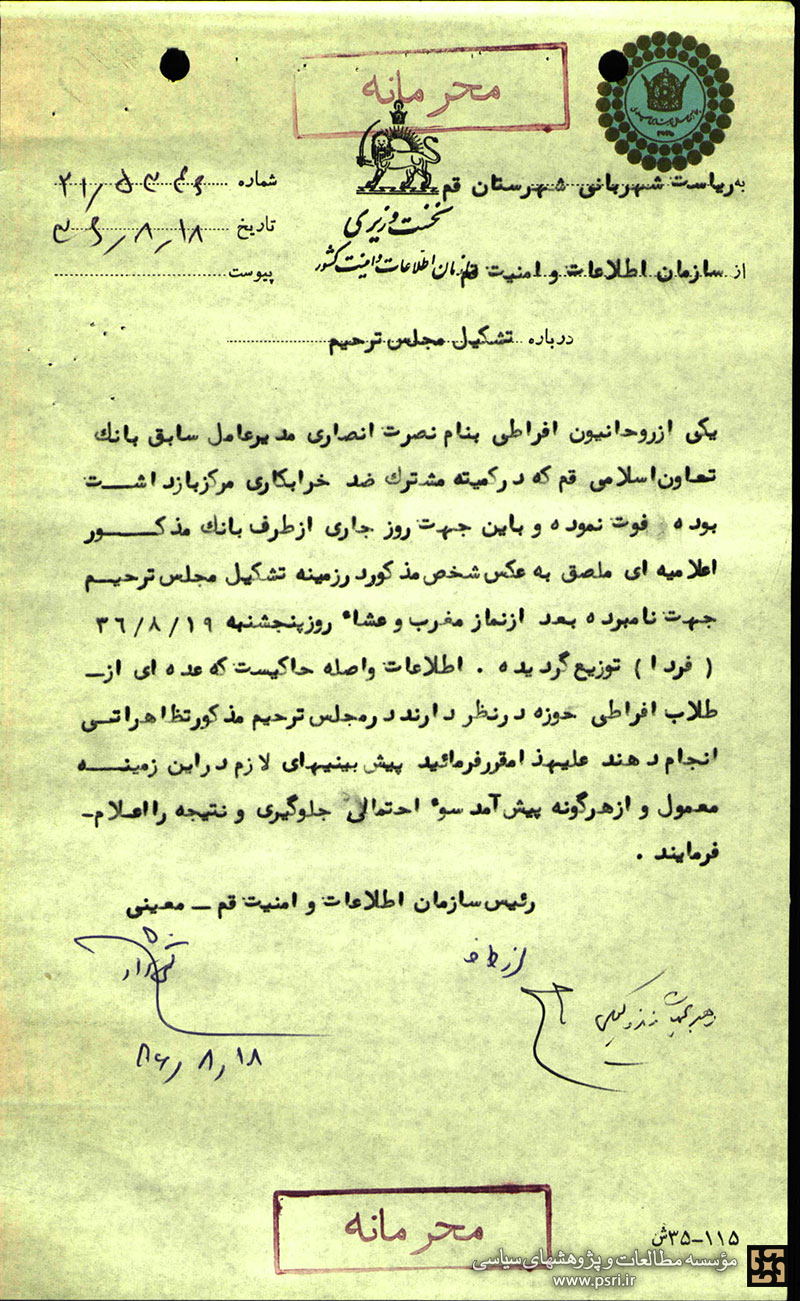 محرمانه
به ریاست شهربانی شهرستان قم
شماره ۲۱/۵۳۴۶
نخست وزیری
تاریخ ۳۶/۸/۱۸
از سازمان اطلاعات و امنیت قم
سازمان اطلاعات و امنیت کشور
پیوست
درباره تشکیل مجلس ترحیم
یکی ازروحانیون افراطی بنام نصرت انصاری مدیرعامل سابق بانک
تعاون اسلامی قم که درکمیته مشترک ضد خرابکاری مرکزبازداشت
بوده فوت نموده و باین جهت روز جاری ازطرف بانک مذکور
اعلامیه ای ملصق به عکس شخص مذکوردرزمینه تشکیل مجلس ترحیم
جهت نامبرده بعد ازنماز مغرب و عشاء روزپنجشنبه ۳۶/۸/۱۹
(فردا) توزیع گردیده . اطلاعات واصله حاکیست که عده ای از ـ
طلاب افراطی حوزه درنظر دارند درمجلس ترحیم مذکورتظاهراتی
انجام دهند علیهذا مقررفرمائید پیش بینیهای لازم دراین زمینه
معمول و ازهرگونه پیش آمد سوء احتمالی جلوگیری و نتیجه را اعلام ـ
فرمایند .
رئیس سازمان اطلاعات و امنیت قم ـ معینی
از طرف
۸/۱۸
محرمانه
۱۱۵-۳۵ش
مؤسسه مطالعات و پژوهشهای سیاسی
www.psri.ir